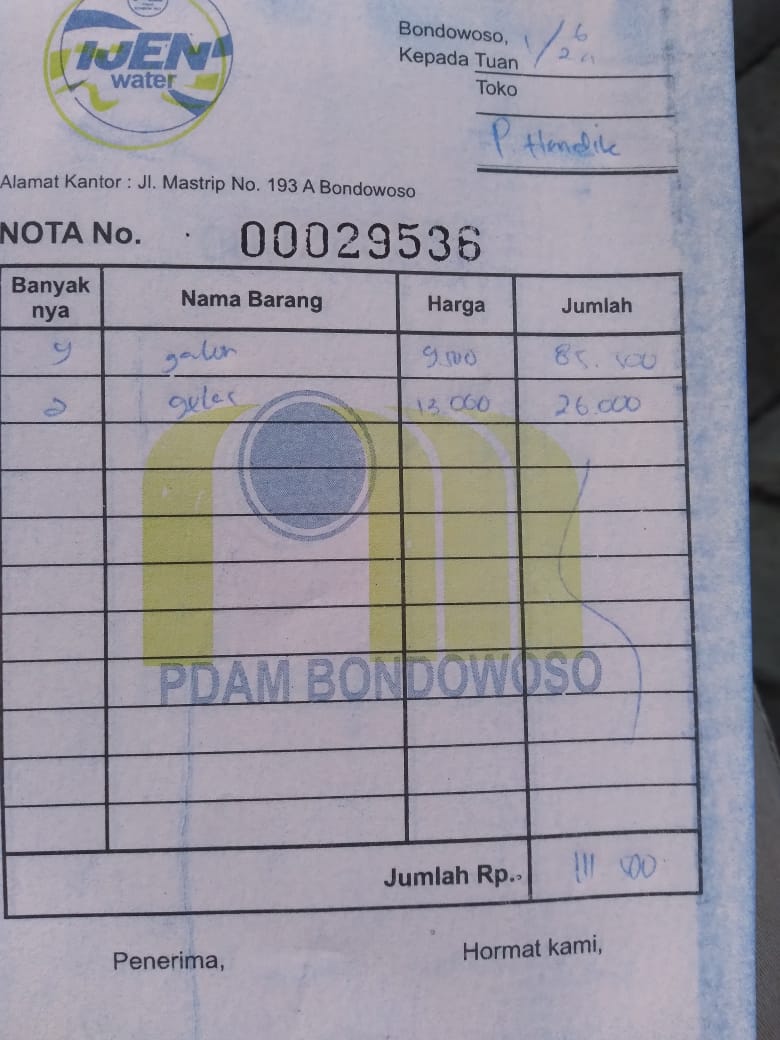 IJEN
water
Bondowoso, 1/6
Kepada Tuan
Toko
P. Hendik
Alamat Kantor : Jl. Mastrip No. 193 A Bondowoso
NOTA No. 00029536
Banyak nya Nama Barang Harga Jumlah
9 galon 9.500 85.500
2 gelas 13.000 26.000
PDAM BONDOWOSO
Jumlah Rp. 111 500
Penerima, Hormat kami,